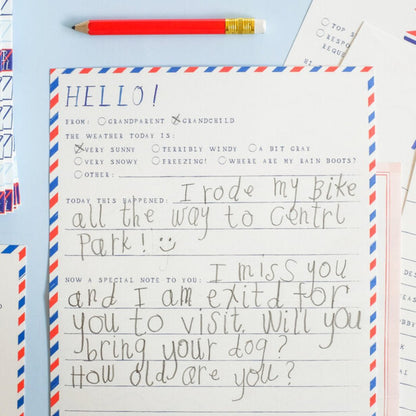 HELLO!
FROM: GRANDPARENT GRANDCHILD
THE WEATHER TODAY IS:
VERY SUNNY TERRIBLY WINDY A BIT GRAY
VERY SNOWY FREEZING! WHERE ARE MY RAIN BOOTS?
OTHER:
TODAY THIS HAPPENED: I rode my Bike
all the way to Centrl
Park!
NOW A SPECIAL NOTE TO YOU: I miss you
and I am exitd for
you to visit. Will you
bring your dog?
How old are you?
TOP